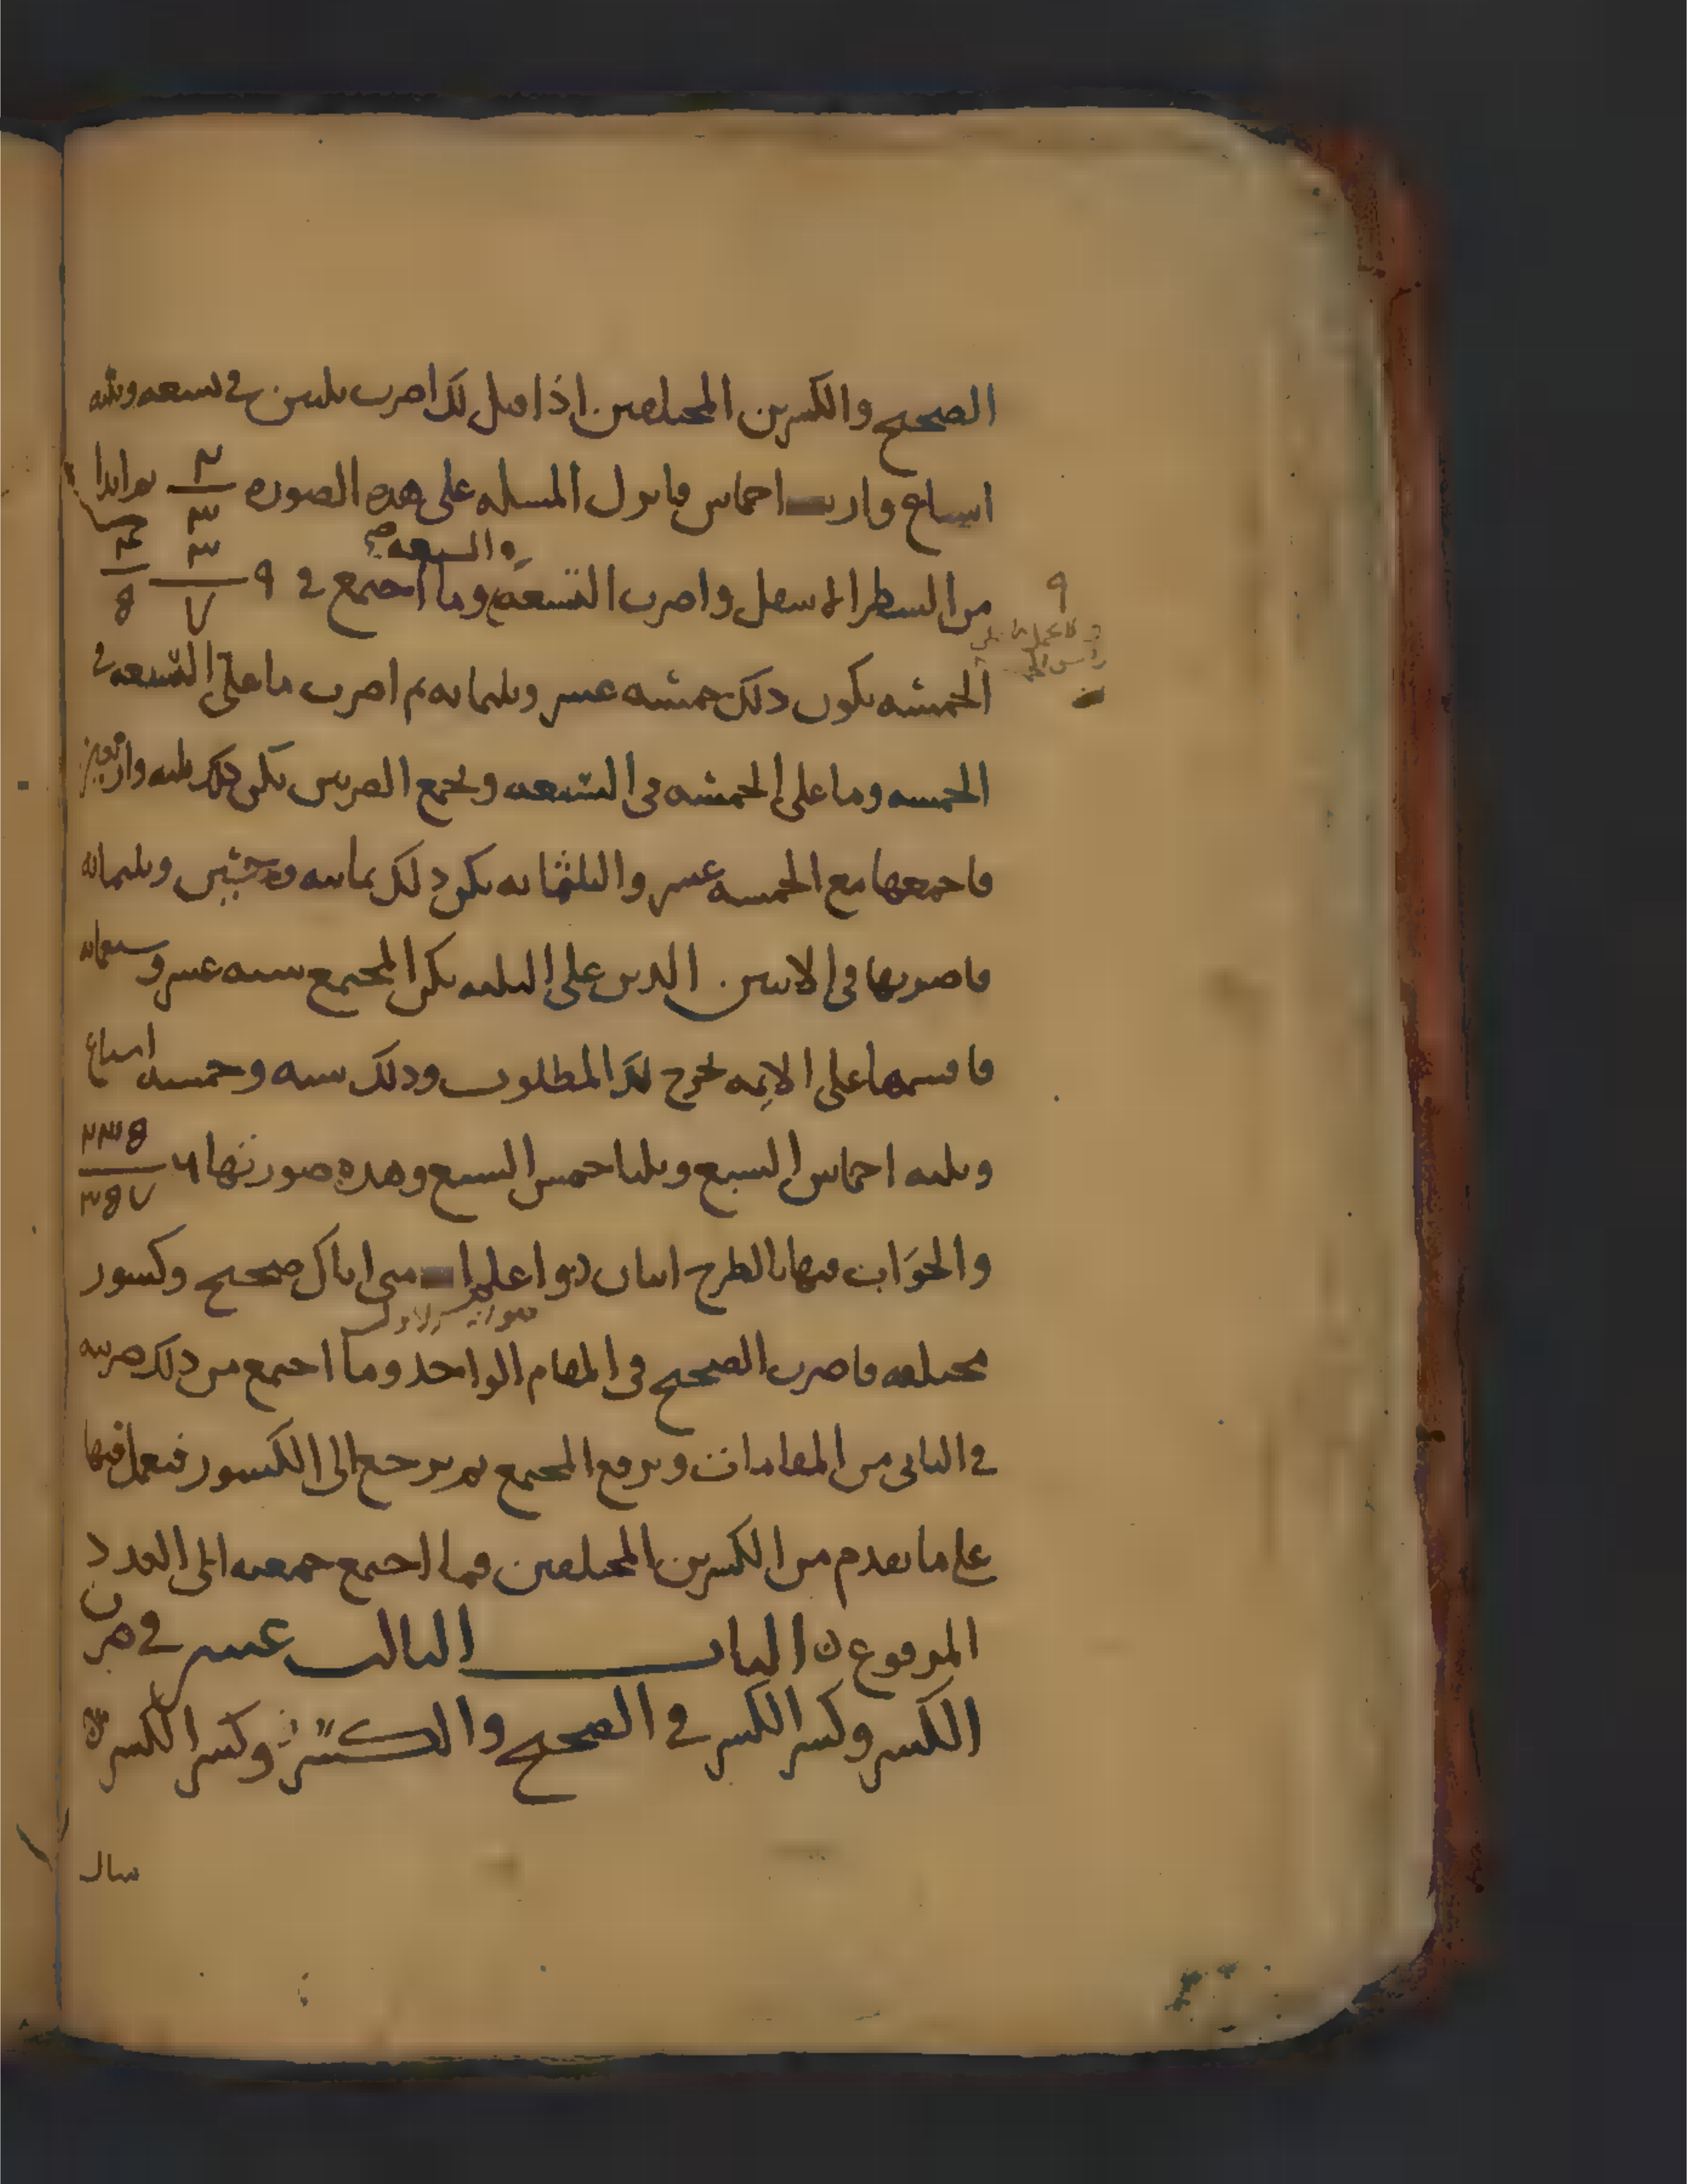 الصحيح والكسرين المختلفين اذا قيل لك اضرب ثلثين في تسعه وثلثه
اسباع واربعة اخماس فانزل المسله على هذه الصوره ٢/٣ تم ابدا
والسبعه صح
من السطر الاسفل واضرب التسعه وما اجتمع في ٩ ٣/٧ ٤/٥
٩
الخمسه يكون ذلك خمسه عشر وثلثمايه ثم اضرب ما على السبعه في
الخمسه وما على الخمسه في السبعه وتجمع الضربين يكن ذلك ثلثه واربعين
فاجمعها مع الخمسه عشر والثلثمايه يكن ذلك ثمانيه وخمسين وثلثمايه
فاضربها في الاثنين الذين على الثلثه يكن المجتمع سته عشر وسبعمايه
فاقسمها على الايمه يخرج لك المطلوب وذلك سته وخمسه اسباع
وثلثه اخماس السبع وثلثا خمس السبع وهذه صورتها ٦ ٢٣٥/٣٥٧
والجواب فيها بالطرح اثنان واعلم متى اتاك صحيح وكسور
مختلفه فاضرب الصحيح في المقام الواحد وما اجتمع من ذلك ضربته
في الثاني من المقامات وترفع المجتمع ثم ترجع الى الكسور فتعمل فيها
على ما تقدم من الكسرين المختلفين فما اجتمع جمعته الى العدد
المرفوع ن الباب الثالث عشر في ضرب
الكسر وكسر الكسر في الصحيح والكسر وكسر الكسر